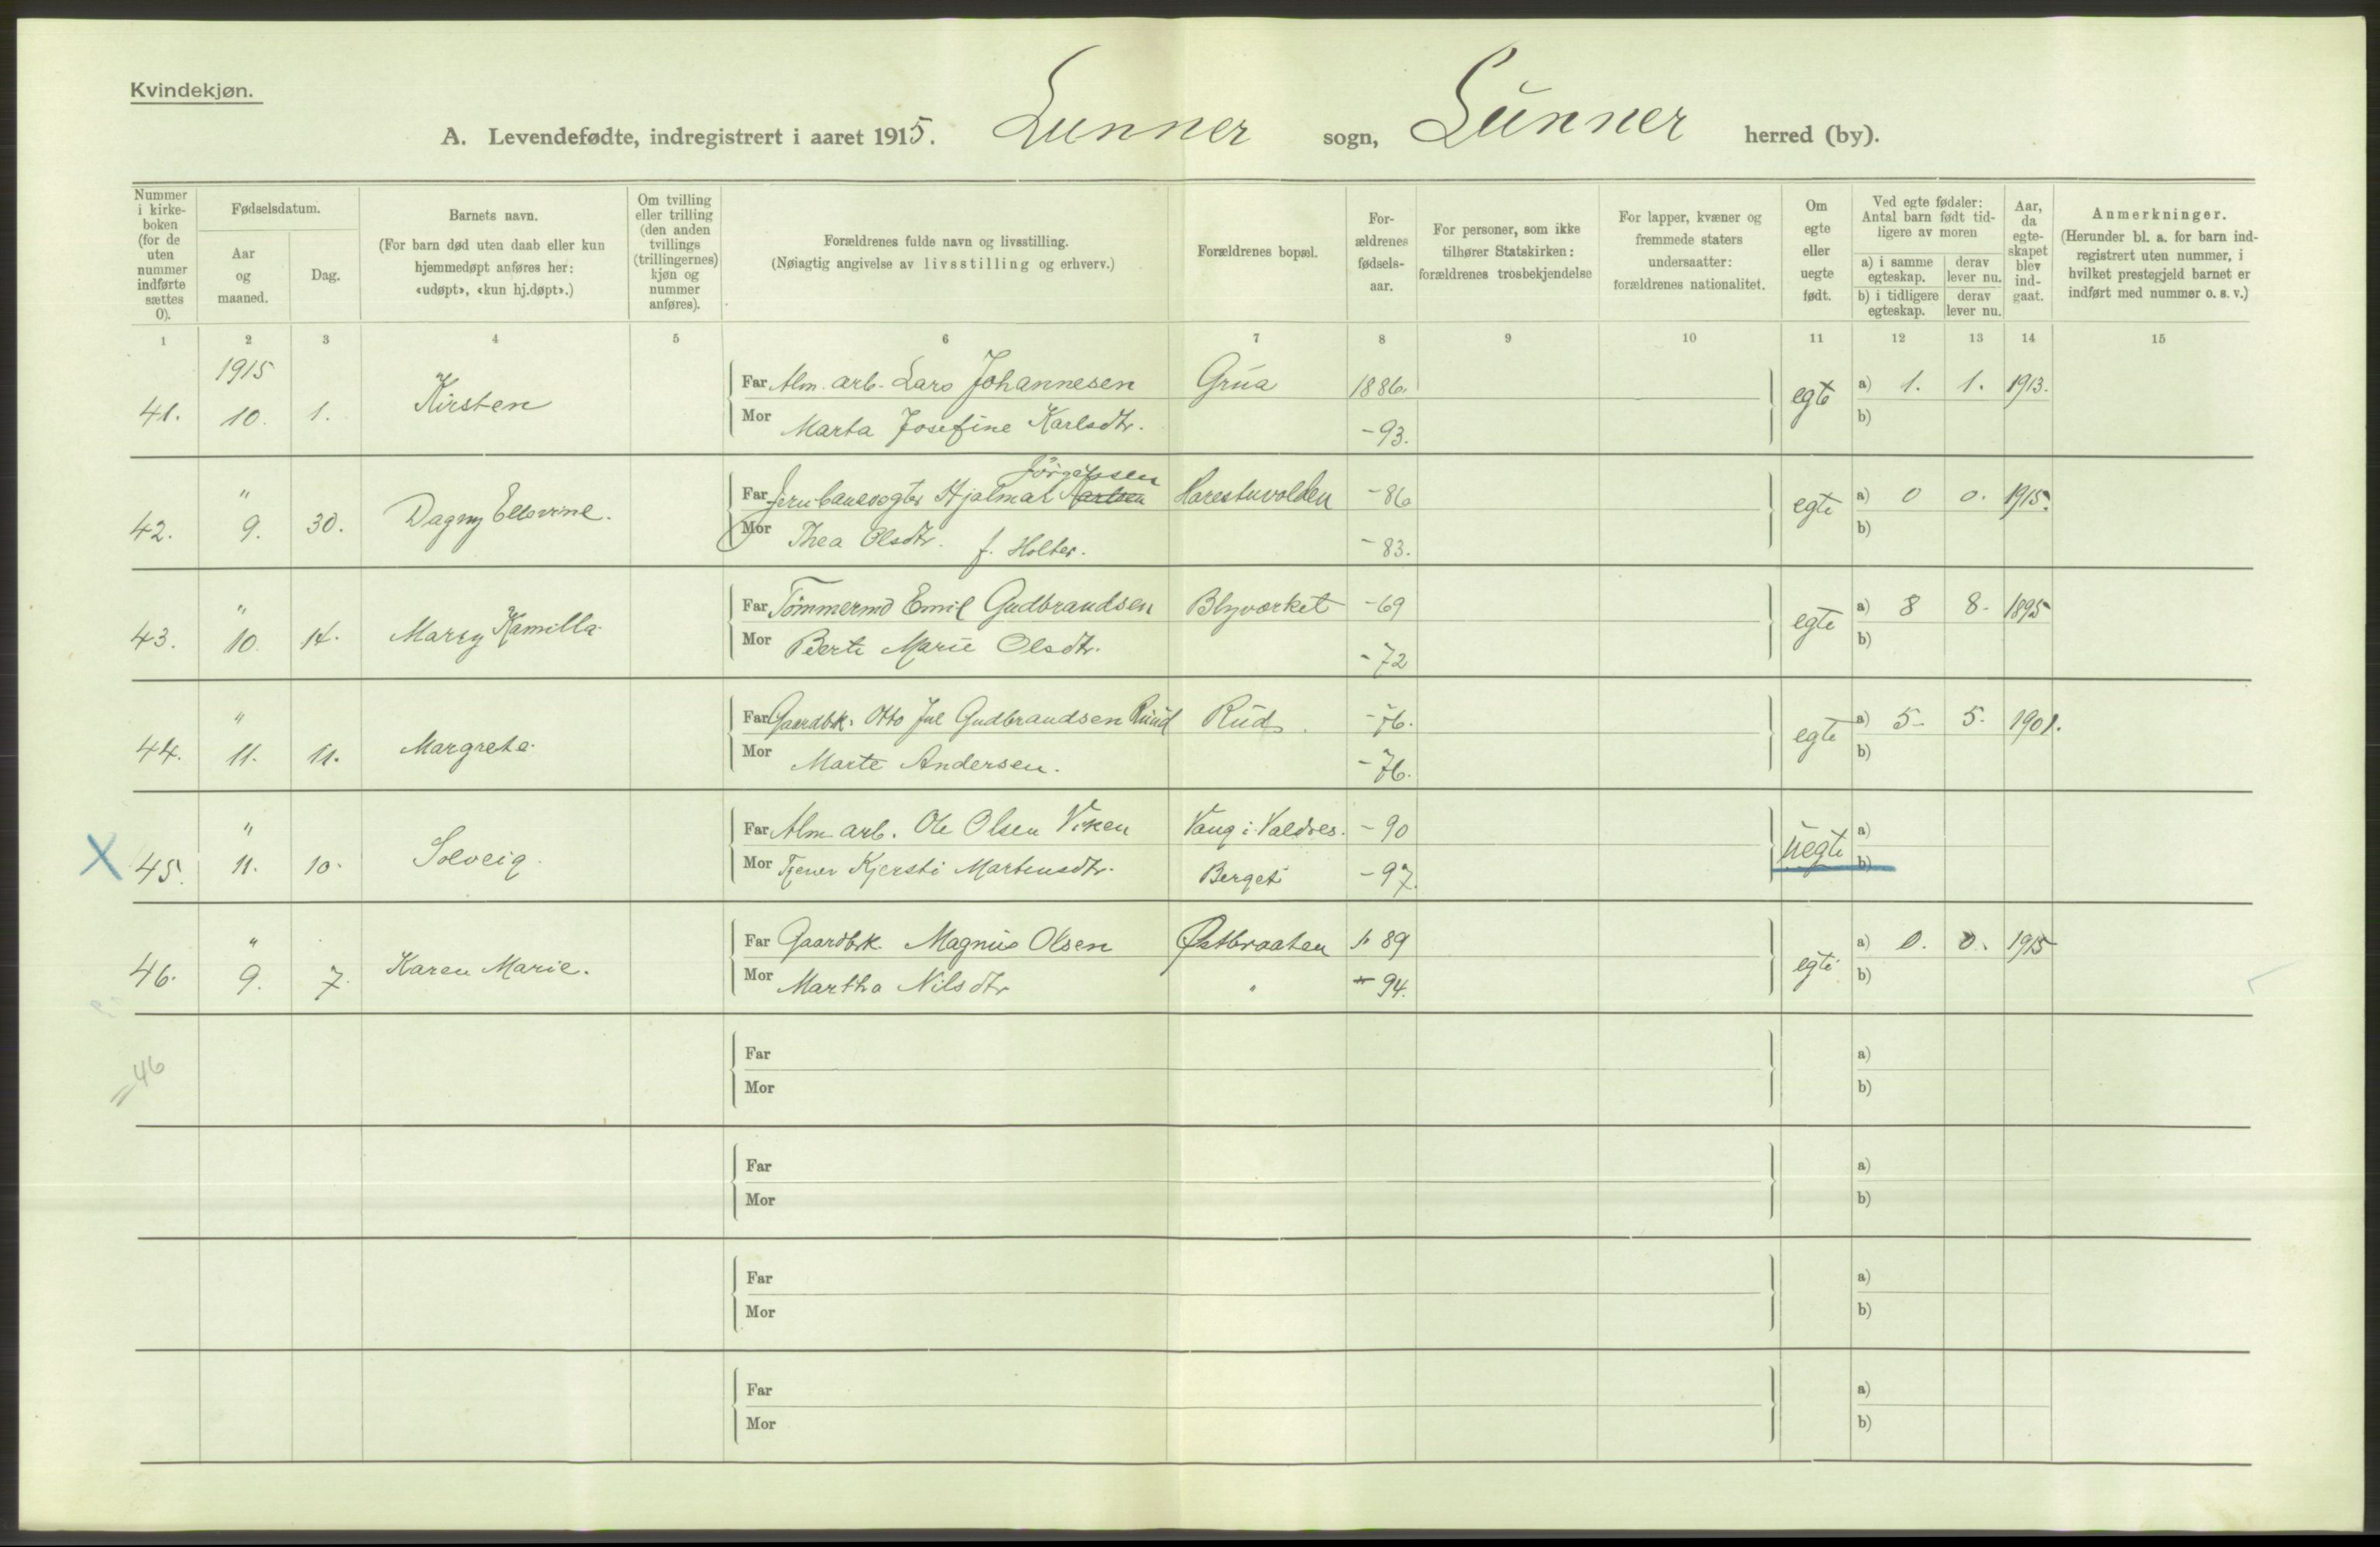 Kvindekjøn.
A. Levendefødte, indregistrert i aaret 1915. Lunner sogn, Lunner herred (by).
Nummer i kirke-boken (for de uten nummer indførte sættes 0).
Fødselsdatum.
Aar og maaned.
Dag.
Barnets navn.
(For barn død uten daab eller kun hjemmedøpt anføres her: «udøpt», «kun hj.døpt».)
Om tvilling eller trilling (den anden tvillings (trillingernes) kjøn og nummer anføres).
Forældrenes fulde navn og livsstilling.
(Nøiagtig angivelse av livsstilling og erhverv.)
Forældrenes bopæl.
For-ældrenes fødsels-aar.
For personer, som ikke tilhører Statskirken: forældrenes trosbekjendelse
For lapper, kvæner og fremmede staters undersaatter: forældrenes nationalitet.
Om egte eller uegte født.
Ved egte fødsler: Antal barn født tid-ligere av moren
a) i samme egteskap.
derav lever nu.
b) i tidligere egteskap.
derav lever nu.
Aar, da egte-skapet blev ind-gaat.
Anmerkninger.
(Herunder bl. a. for barn ind-registrert uten nummer, i hvilket prestegjeld barnet er indført med nummer o. s. v.)
1 2 3 4 5 6 7 8 9 10 11 12 13 14 15
1915
41. 10. 1. Kirsten
Far Alm. arb. Lars Johannesen Grua 1886. egte a) 1. 1. 1913.
Mor Marta Josefine Karlsdtr. -93. b)
Jörgensen
42. " 9. 30. Dagny
Far Jernbanevogter Hjalmar Harestuvolden -86 egte a) 0 0. 1915.
Mor Thea Olsdtr. f. Holter. -83. b)
43. " 10. 14. Kamilla
Far Tømmermd Emil Gudbrandsen Blyverket -69 egte a) 8 8. 1895
Mor Berte Marie Olsdtr. -72 b)
44. " 11. 11. Margrete.
Far Gaardbk. Otto Jul Gudbrandsen Ruud Rud. -76. egte a) 5. 5. 1901.
Mor Marte Andersen. -76. b)
X 45. " 11. 10. Solveig.
Far Alm arb. Ole Olsen Viken Vang i Valdres. -90 uegte a)
Mor Tjener Kjersti Martinsdtr. Berget -97. b)
46. " 9. 7. Karen Marie.
Far Gaardbrk. Magnus Olsen Østbraaten 89 egte a) 0. 0. 1915
Mor Martha Nilsdtr " 94. b)
46
Far a)
Mor b)
Far a)
Mor b)
Far a)
Mor b)
Far a)
Mor b)